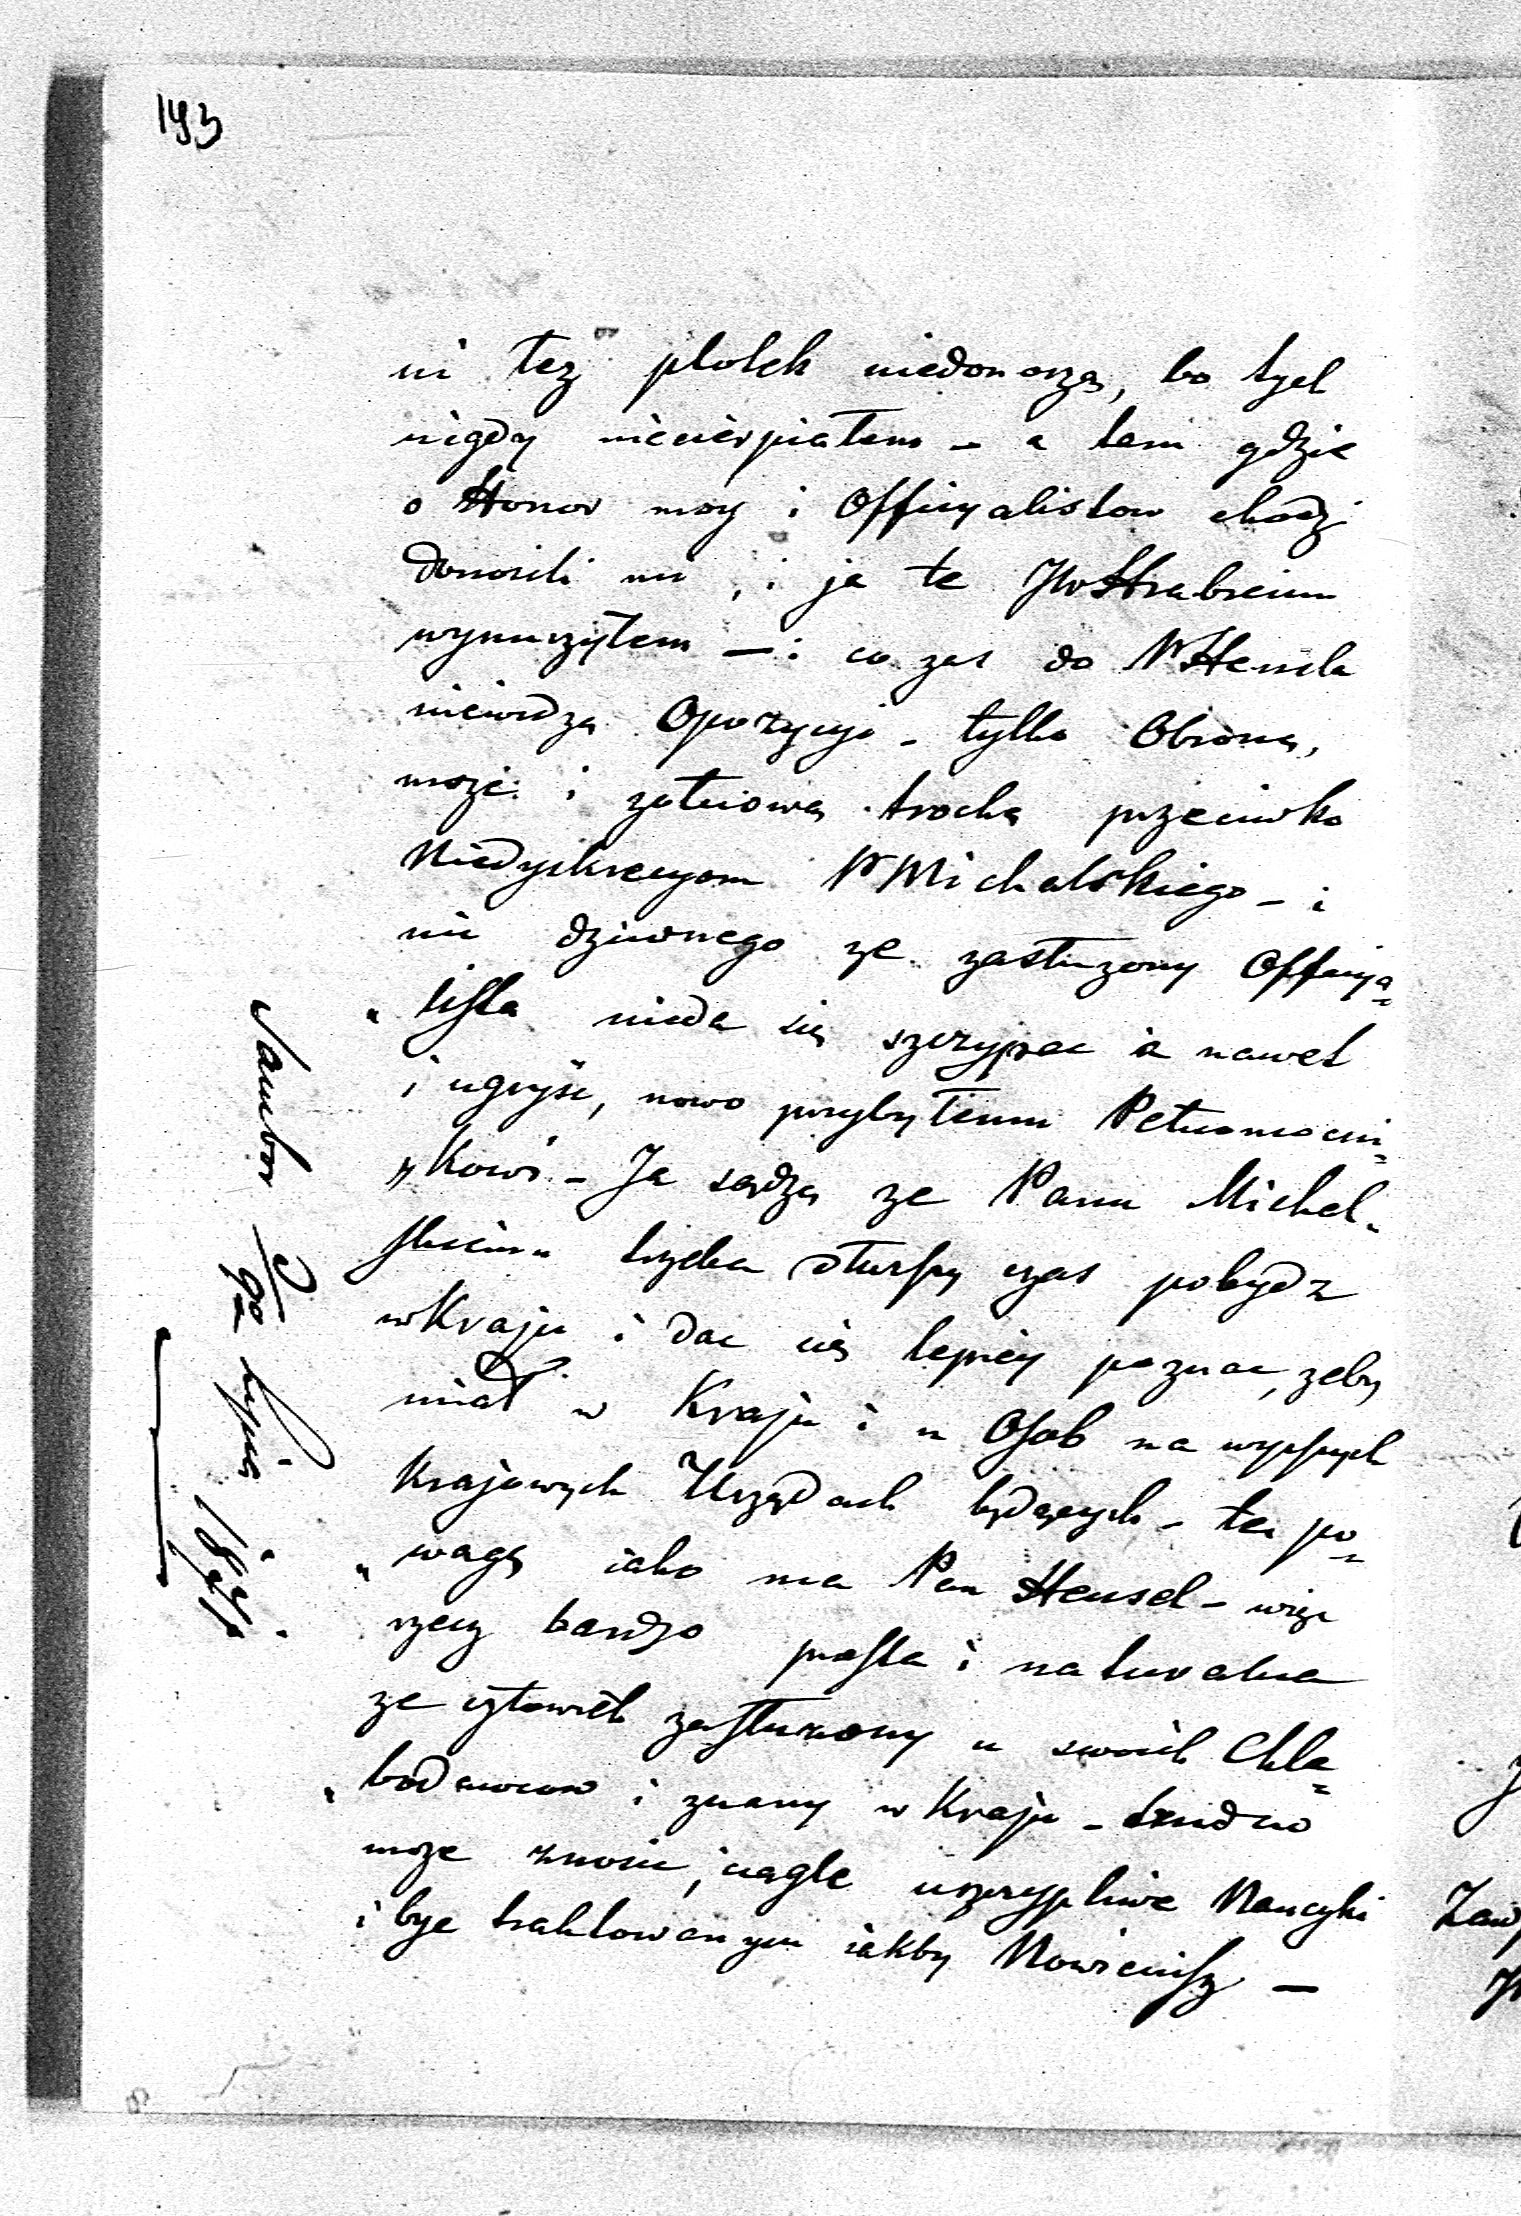 193
ni też plotek niedonoszą, bo tych
nigdy niecierpiałem – a tam gdzie
o Honor moy i Officyalistow chodzi
donosili mi, i ja te JWHrabiemu
wynurzyłem – i co zas do P Hensla
niewidzę Opozycyi – tylko Obronę,
może i żałciową trochę przeciwko
Niedyskrecyom P Michalskiego – i
nic dziwnego ze zasłużony Officya=
"lista nieda się szczypac a nawet
i ugryść, nowo przybyłemu Pełnomocni=
"kowi – Ja sądzę ze Panu Michal=
skiemu trzeba dłuższy czas pobydz
w Kraju i dac się lepiey poznac, zeby
miał w Kraju i u Osob na wyższych
Krajowych Urzędach będących – tę po=
"wagę iako ma Pan Hensel – więc
rzecz bardzo prosta i naturalna
ze człowiek zasłuzony u swoich Chle=
"bodawcow i znany w Kraju – trudno
moze znosic, nagle uszczypliwe Nauczki
i byc traktowanym iakby Nowicyusz –
Sambor d
go lipca